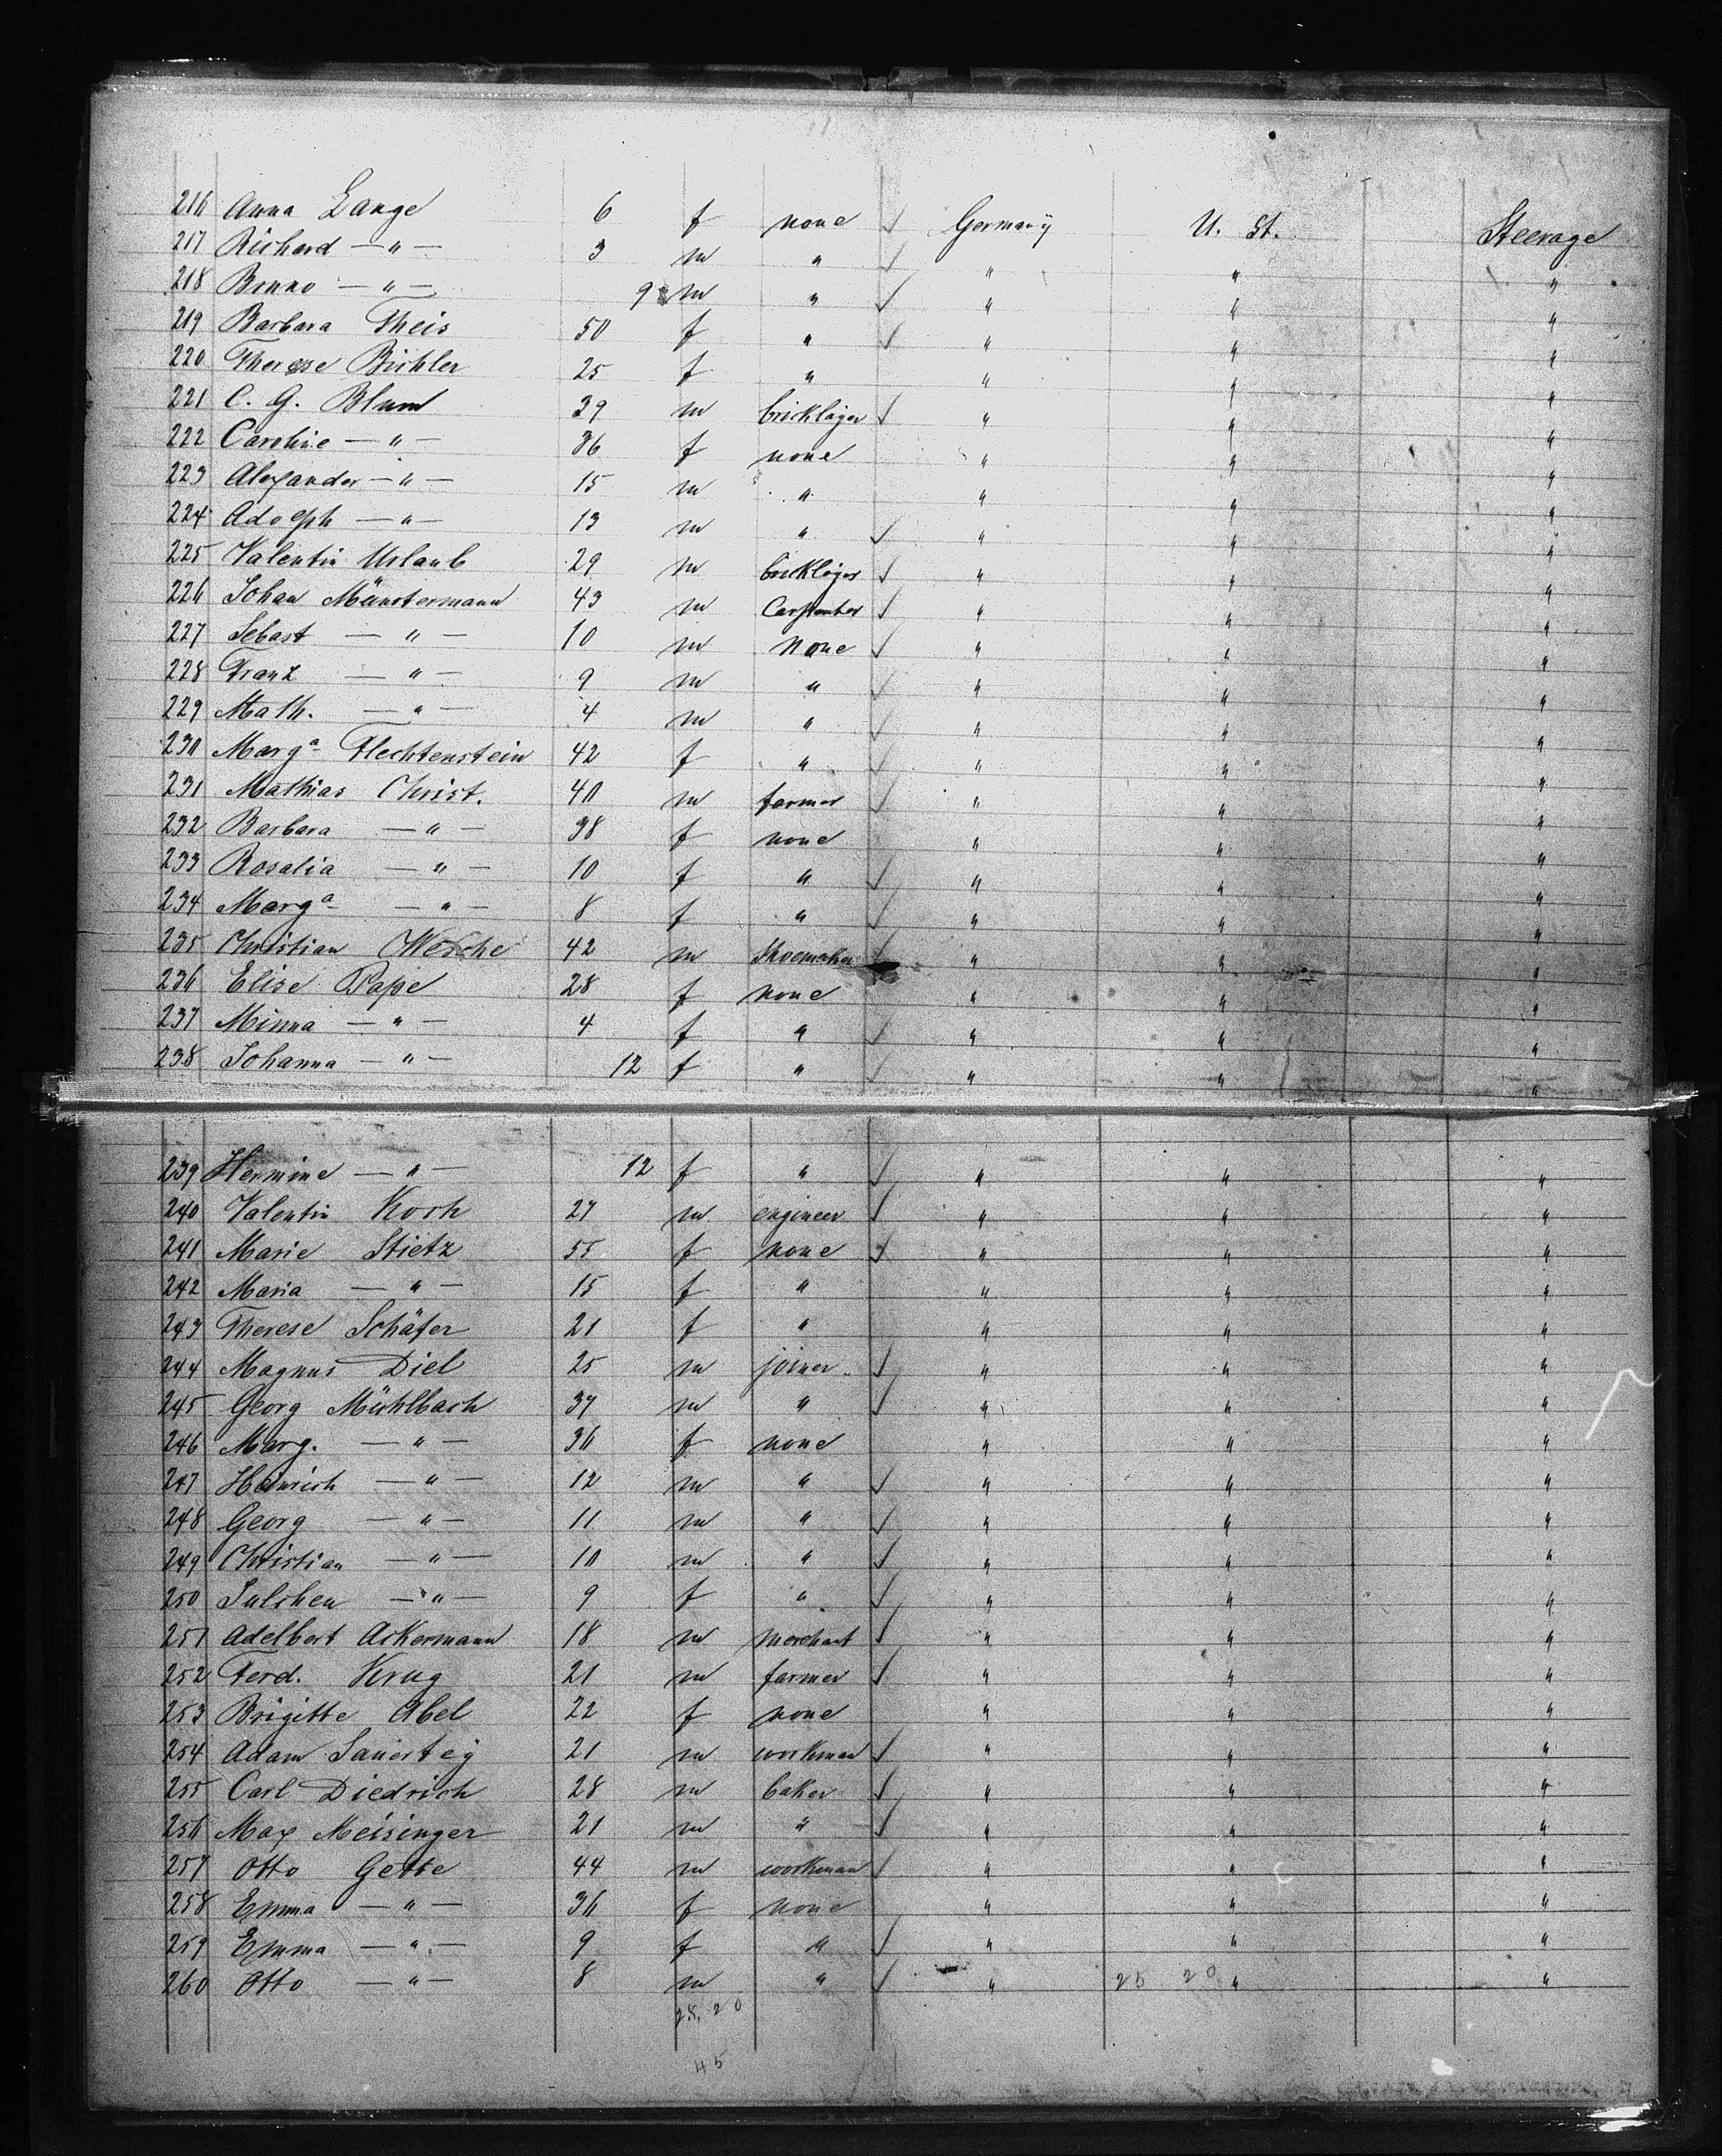 216 Anna Lange 6 f none ✓ Germany U. St. Steerage
217 Richard —"— 3 m " ✓ " " "
218 Bruno —"— 9 m " ✓ " " "
219 Barbara Theis 50 f " ✓ " " "
220 Therese Bichler 25 f " " " "
221 C. G. Blum 39 m bricklajer ✓ " " "
222 Caroline —"— 36 f none " " "
223 Alexander —"— 15 m " " " "
224 Adolph —"— 13 m " ✓ " " "
225 Valentin Urlaub 29 m bricklajer ✓ " " "
226 Johan Münstermann 43 m Carpenter ✓ " " "
227 Sebast —"— 10 m none ✓ " " "
228 Franz —"— 9 m " ✓ " " "
229 Math. —"— 4 m " ✓ " " "
230 Marga Flechtenstein 42 f " ✓ " " "
231 Mathias Christ. 40 m farmer ✓ " " "
232 Barbara —"— 38 f none " " "
233 Rosalia —"— 10 f " ✓ " " "
234 Marga —"— 8 f " ✓ " " "
235 Christian Wesche 42 m Shoemaker ✓ " " "
236 Elise Pape 28 f none " " "
237 Minna —"— 4 f " ✓ " " "
238 Johanna —"— 12 f " ✓ " " "
239 Hermine —"— 12 f " ✓ " " "
240 Valentin Koch 27 m engineer ✓ " " "
241 Marie Stietz 55 f none ✓ " " "
242 Maria —"— 15 f " " " "
243 Therese Schäfer 21 f " " " "
244 Magnus Diel 25 m joiner ✓ " " "
245 Georg Mühlbach 37 m " ✓ " " "
246 Marg. —"— 36 f none " " "
247 Heinrich —"— 12 m " ✓ " " "
248 Georg —"— 11 m " ✓ " " "
249 Christian —"— 10 m " ✓ " " "
250 Julchen —"— 9 f " ✓ " " "
251 Adelbert Ackermann 18 m merchant ✓ " " "
252 Ferd. Krug 21 m farmer ✓ " " "
253 Brigitte Abel 22 f none " " "
254 Adam Sauerteÿ 21 m workman ✓ " " "
255 Carl Diedrich 28 m baker ✓ " " "
256 Max Meisinger 21 m " ✓ " " "
257 Otto Gette 44 m workman ✓ " " "
258 Emma —"— 36 f none " " "
259 Emma —"— 9 f " ✓ " " "
260 Otto —"— 8 m " ✓ " 25 20 " "
25. 20
45